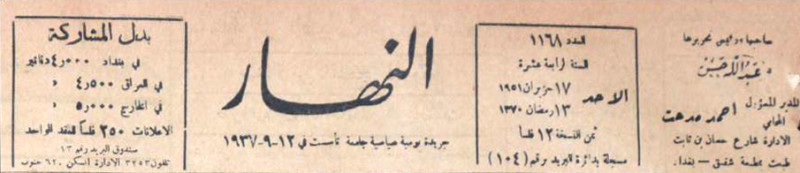 صاحبها ورئيس تحريرها
عبدالله حسن
المدير المسؤول
المحامي
احمد مدحت
الادارة شارع حسان بن ثابت
طبعت بمطبعة شفيق – بغداد.
العدد ١١٦٨
السنة الرابعة عشرة
الاحد
١٧ حزيران ١٩٥١
١٣ رمضان ١٣٧٠
ثمن النسخة ١٢ فلسا
مسجلة بدائرة البريد برقم (١٠٤)
النهار
جريدة يومية سياسية جامعة تأسست في ١٢-٩-١٩٣٧
بدل المشاركة
في بغداد ٤٫٠٠٠ دنانير
في العراق ٤٫٥٠٠ «
في الخارج ٥٫٠٠٠ «
الاعلانات ٢٥٠ فلسا للعقد الواحد
صندوق البريد رقم ١٣
تلفون ٣٢٥٣ الادارة السكن ٦٢٠ جنوب